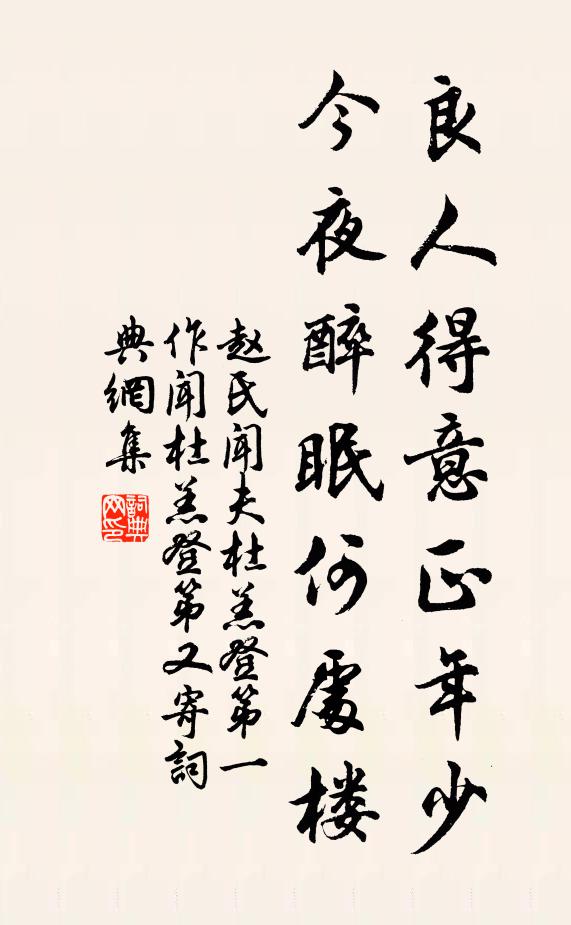 良人得意正年少
今夜醉眠何處楼
赵氏闻夫杜羔登第一
作闻杜羔登第又寄詞
典網集
詞典
网印